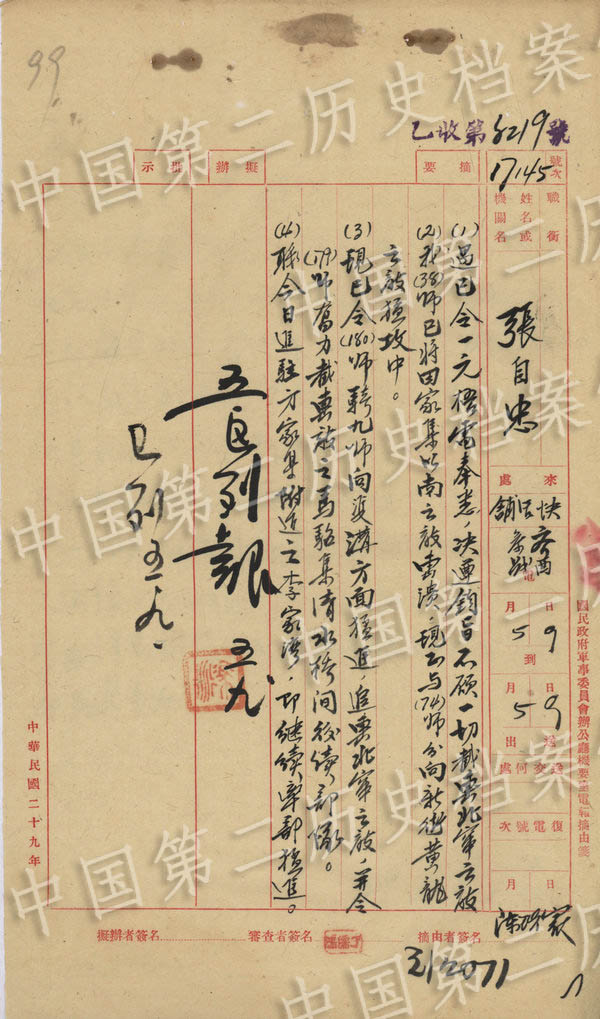 99
乙收第6219號
號次
17145
職銜
姓名或
機關名
張自忠
來處
快活舖
齊酉
電
月 日
5 9
到
月 日
5 9
送出
送交何處
復電號次
月 日
摘要
(1)遇已令一元梧電奉悉，決遵鈞旨不顧一切截擊北竄之敵
(2)我(38)師已將田家集以南之敵擊潰，現正與(74)師分向新街黃龍
之敵猛攻中。
(3)現已令(180)師騎九師向雙溝方面猛進，追擊北竄之敵，並令
(179)師奮力截擊敵之馬駱集清水橋間後續部隊。
(4)職今日進駐方家集附近之李家灣，即繼續率部猛進。
擬辦
五月列報 五九
已列 五、九、
批示
中華民國二十九年
國民政府軍事委員會辦公廳機要室電報摘由箋
擬辦者簽名
審查者簽名
摘由者簽名
中国第二历史档案